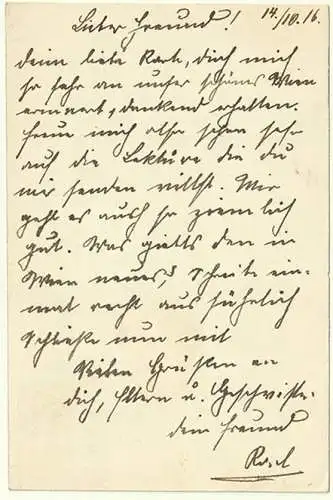 Lieber Freund! 14./10.16.
Deine liebe Karte, die mich
so sehr an unser schönes Wien
erinnert, dankend erhalten.
Freue mich schon sehr
auf die Lektüre die du
mir senden willst. Mir
geht es auch so ziemlich
gut. Was giebts den in
Wien neues? Schreibe ein-
mal recht ausführlich
Schließe nun mit
Vielen Grüßen an
dich, Eltern u. Geschwister
dein Freund
Karl